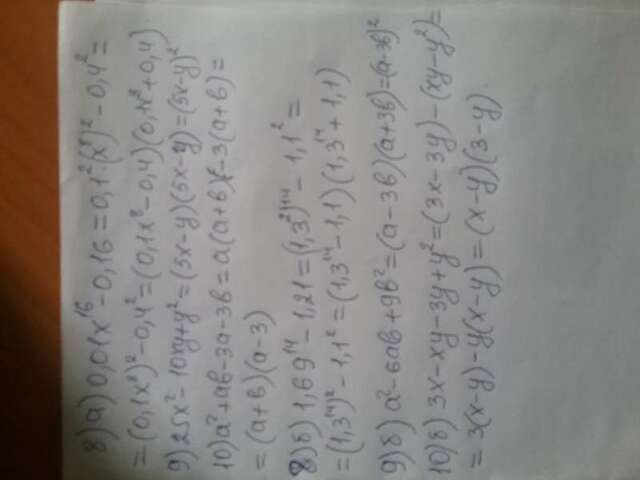 8) а) 0,01x¹⁶ - 0,16 = 0,1²·(x⁸)² - 0,4² =
= (0,1x⁸)² - 0,4² = (0,1x⁸ - 0,4)(0,1x⁸ + 0,4)
9) 25x² - 10xy + y² = (5x - y)(5x - y) = (5x - y)²
10) a² + ab - 3a - 3b = a(a + b) - 3(a + b) =
= (a + b)(a - 3)
8) б) 1,69¹⁴ - 1,21 = (1,3²)¹⁴ - 1,1² =
= (1,3¹⁴)² - 1,1² = (1,3¹⁴ - 1,1)(1,3¹⁴ + 1,1)
9) б) a² - 6ab + 9b² = (a - 3b)(a + 3b) = (a - 3b)²
10) б) 3x - xy - 3y + y² = (3x - 3y) - (xy - y²) =
= 3(x - y) - y(x - y) = (x - y)(3 - y)